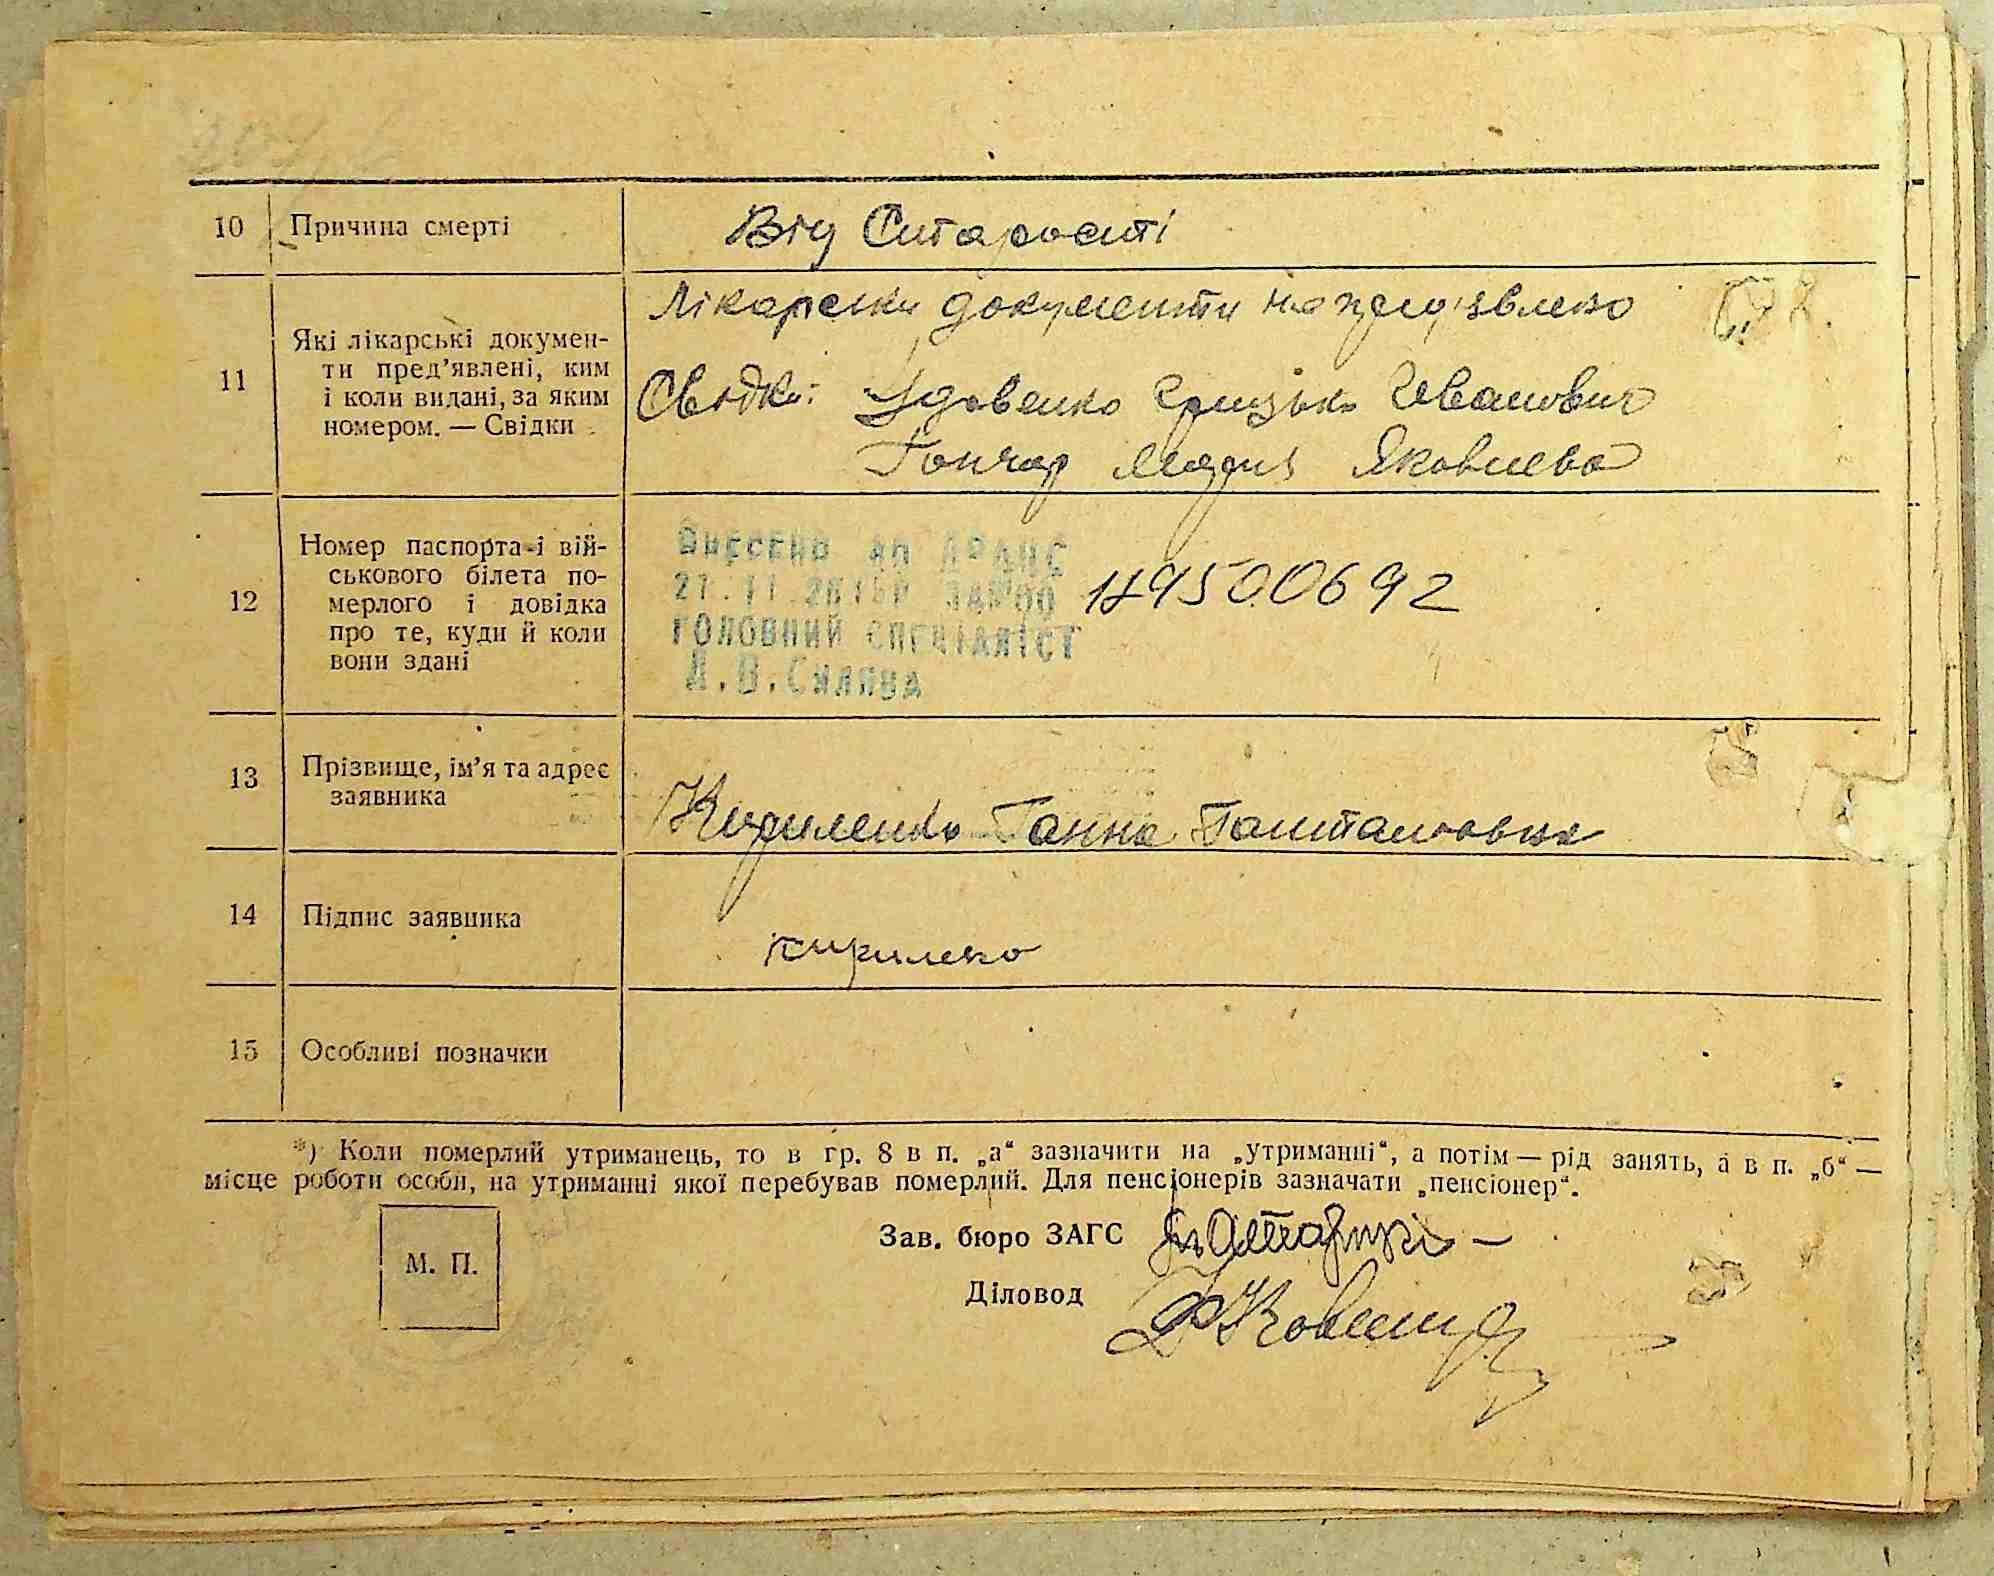 10 Причина смерті
Від Старості
Лікарски документи не
11 Які лікарські докумен-
ти пред'явлені, ким
і коли видані, за яким
номером. — Свідки
Свідки: Удовенко Грицько Іванович
Гончар Мария Яковлева
12 Номер паспорта і вій-
ськового білета по-
мерлого і довідка
про те, куди й коли
вони здані
Внесено до ДРАЦС
ГОЛОВНИЙ СПЕЦІАЛІСТ
1495006 92
13 Прізвище, ім'я та адрес
заявника
Кириленко Ганна
14 Підпис заявника
кирилеко
15 Особливі позначки
*) Коли померлий утриманець, то в гр. 8 в п. „а“ зазначити на „утриманні“, а потім — рід занять, а в п. „б“ —
місце роботи особи, на утриманні якої перебував померлий. Для пенсіонерів зазначати „пенсіонер“.
М. П.
Зав. бюро ЗАГС
Діловод